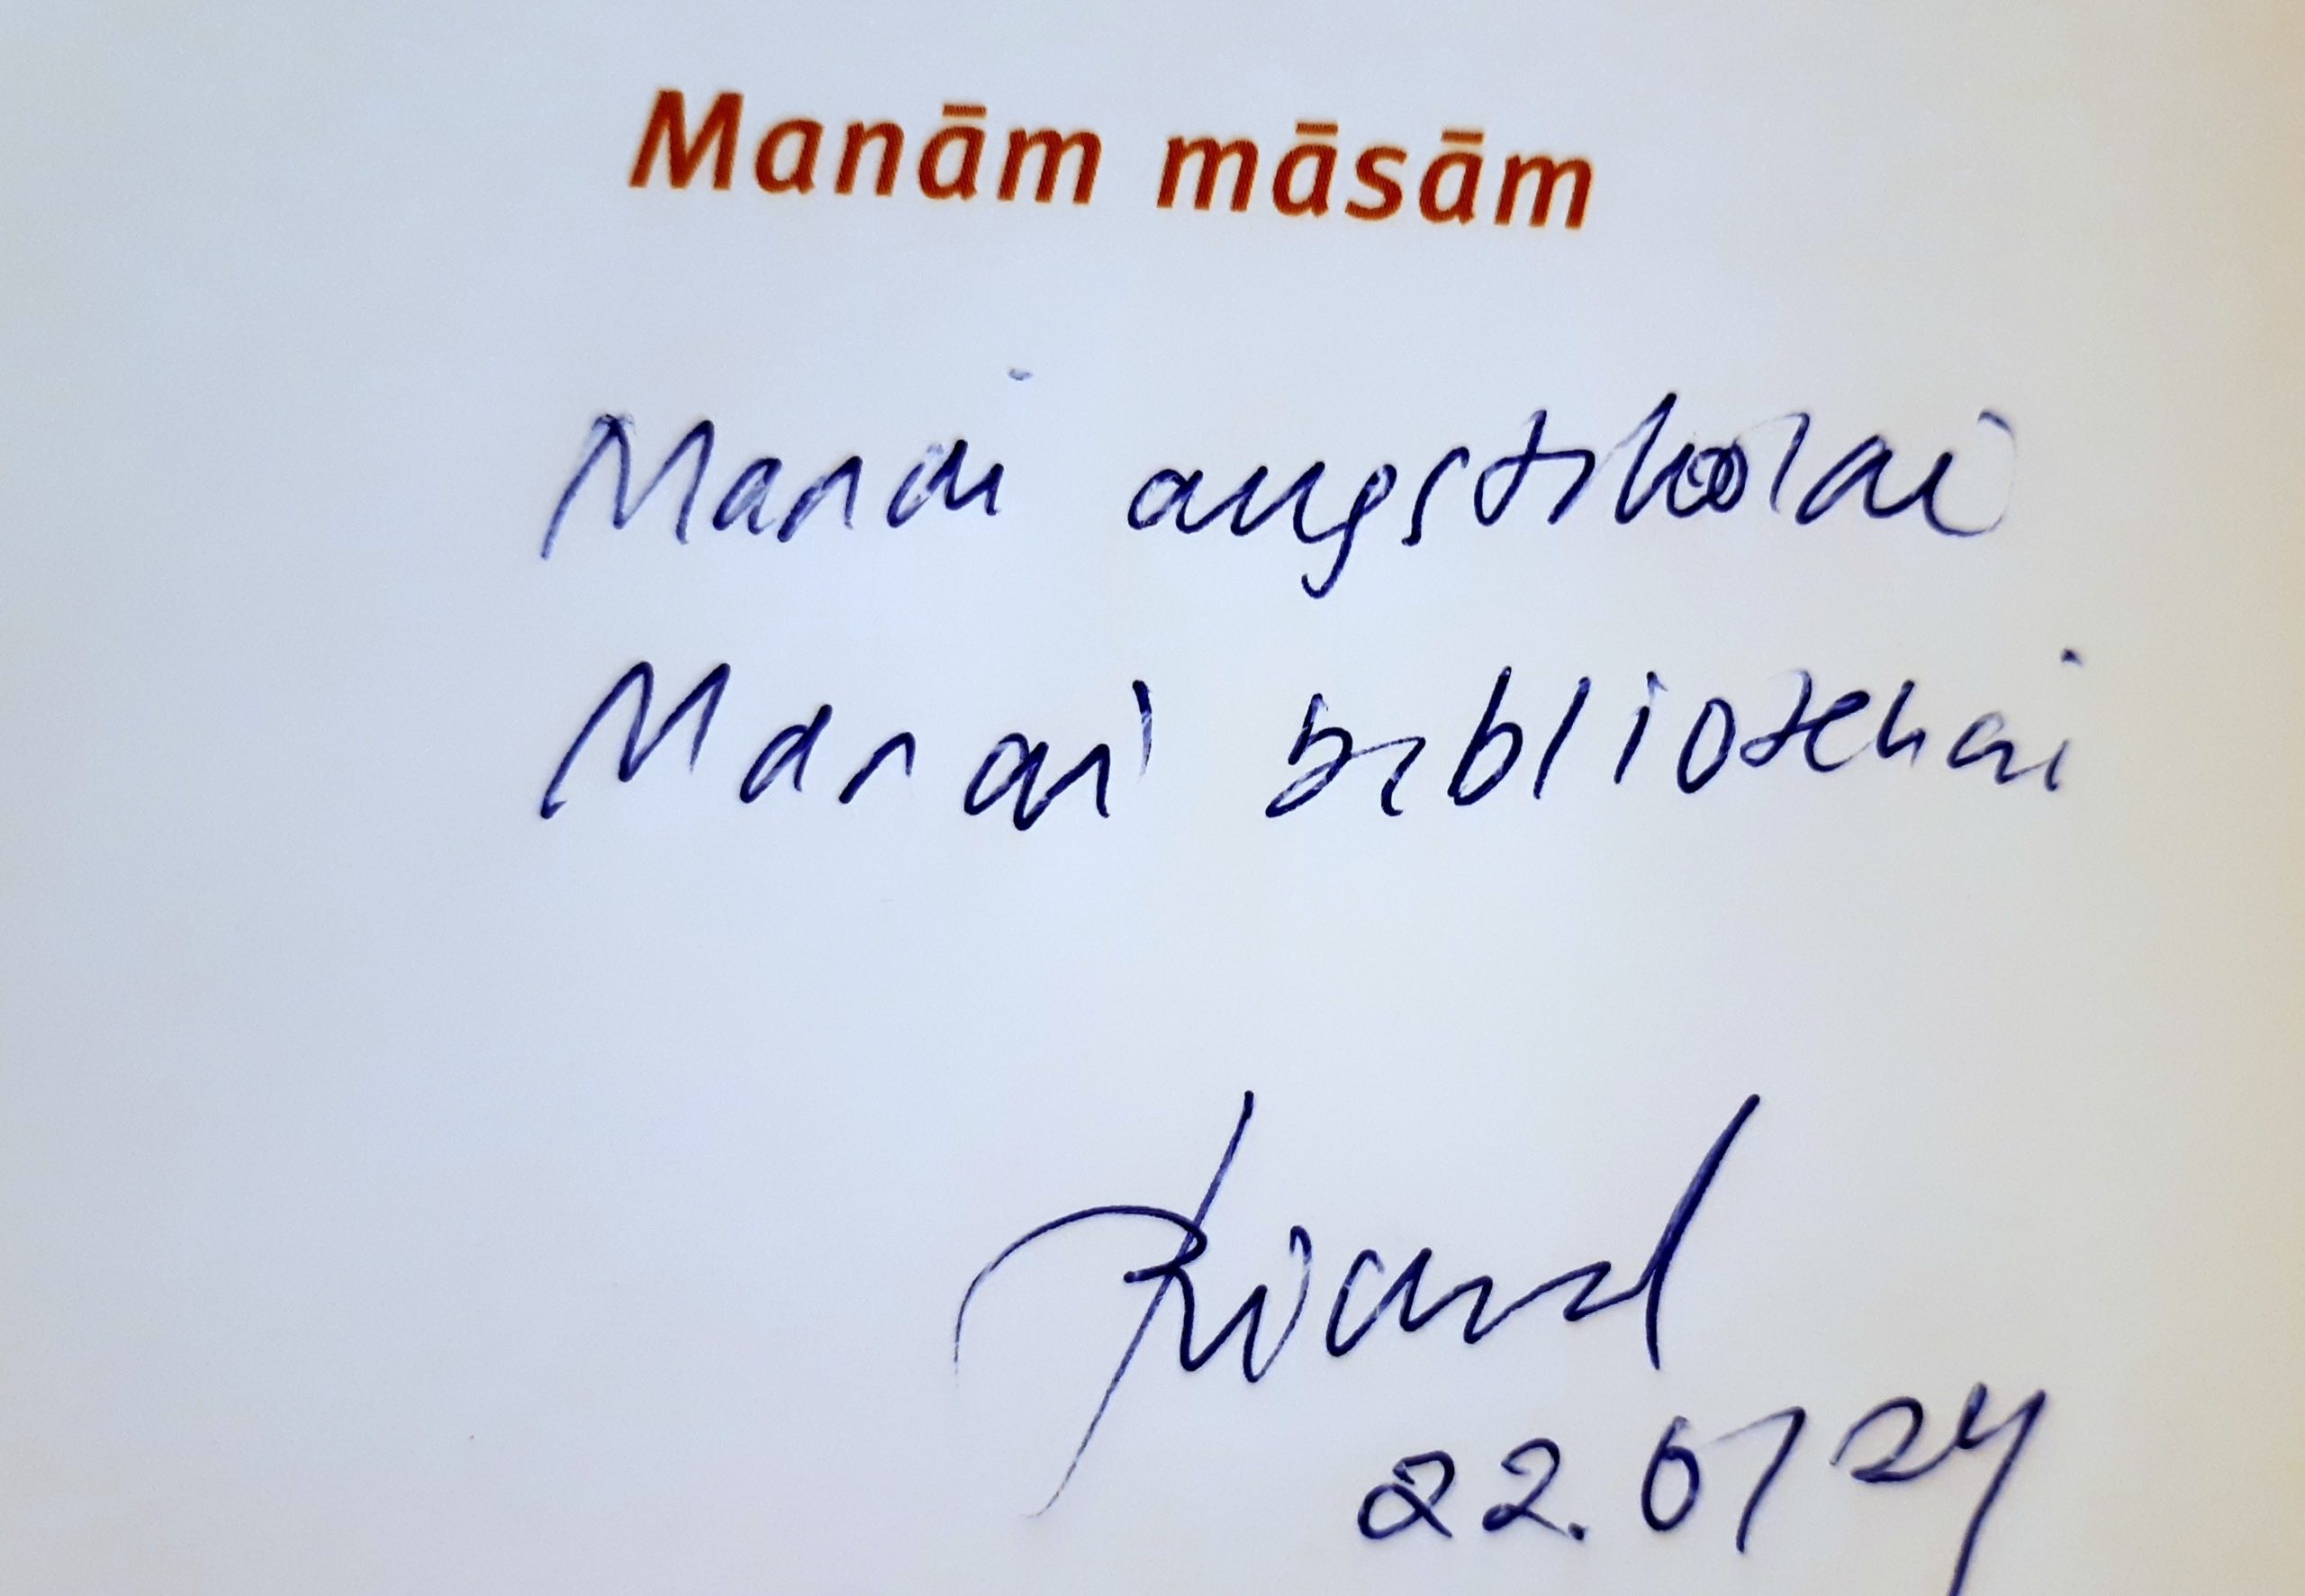 Manām māsām
Manai augstskolai
Manai bibliotekai
22.01 24